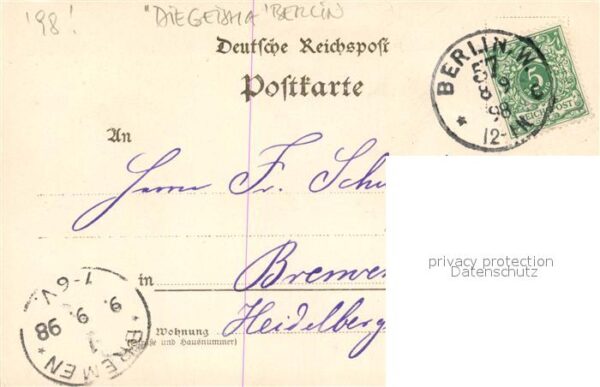 '98! "DIE GEISHA" BERLIN
Deutsche Reichspost
Postkarte
BERLIN, W.
57
9 8
98
12-1N.
5
REICHSPOST
An
Herrn Fr.
privacy protection
Datenschutz
in Bremen
Wohnung
(Straße und Hausnummer)
Heidelberg
BREMEN
1
9. 9. 98
1-6V.